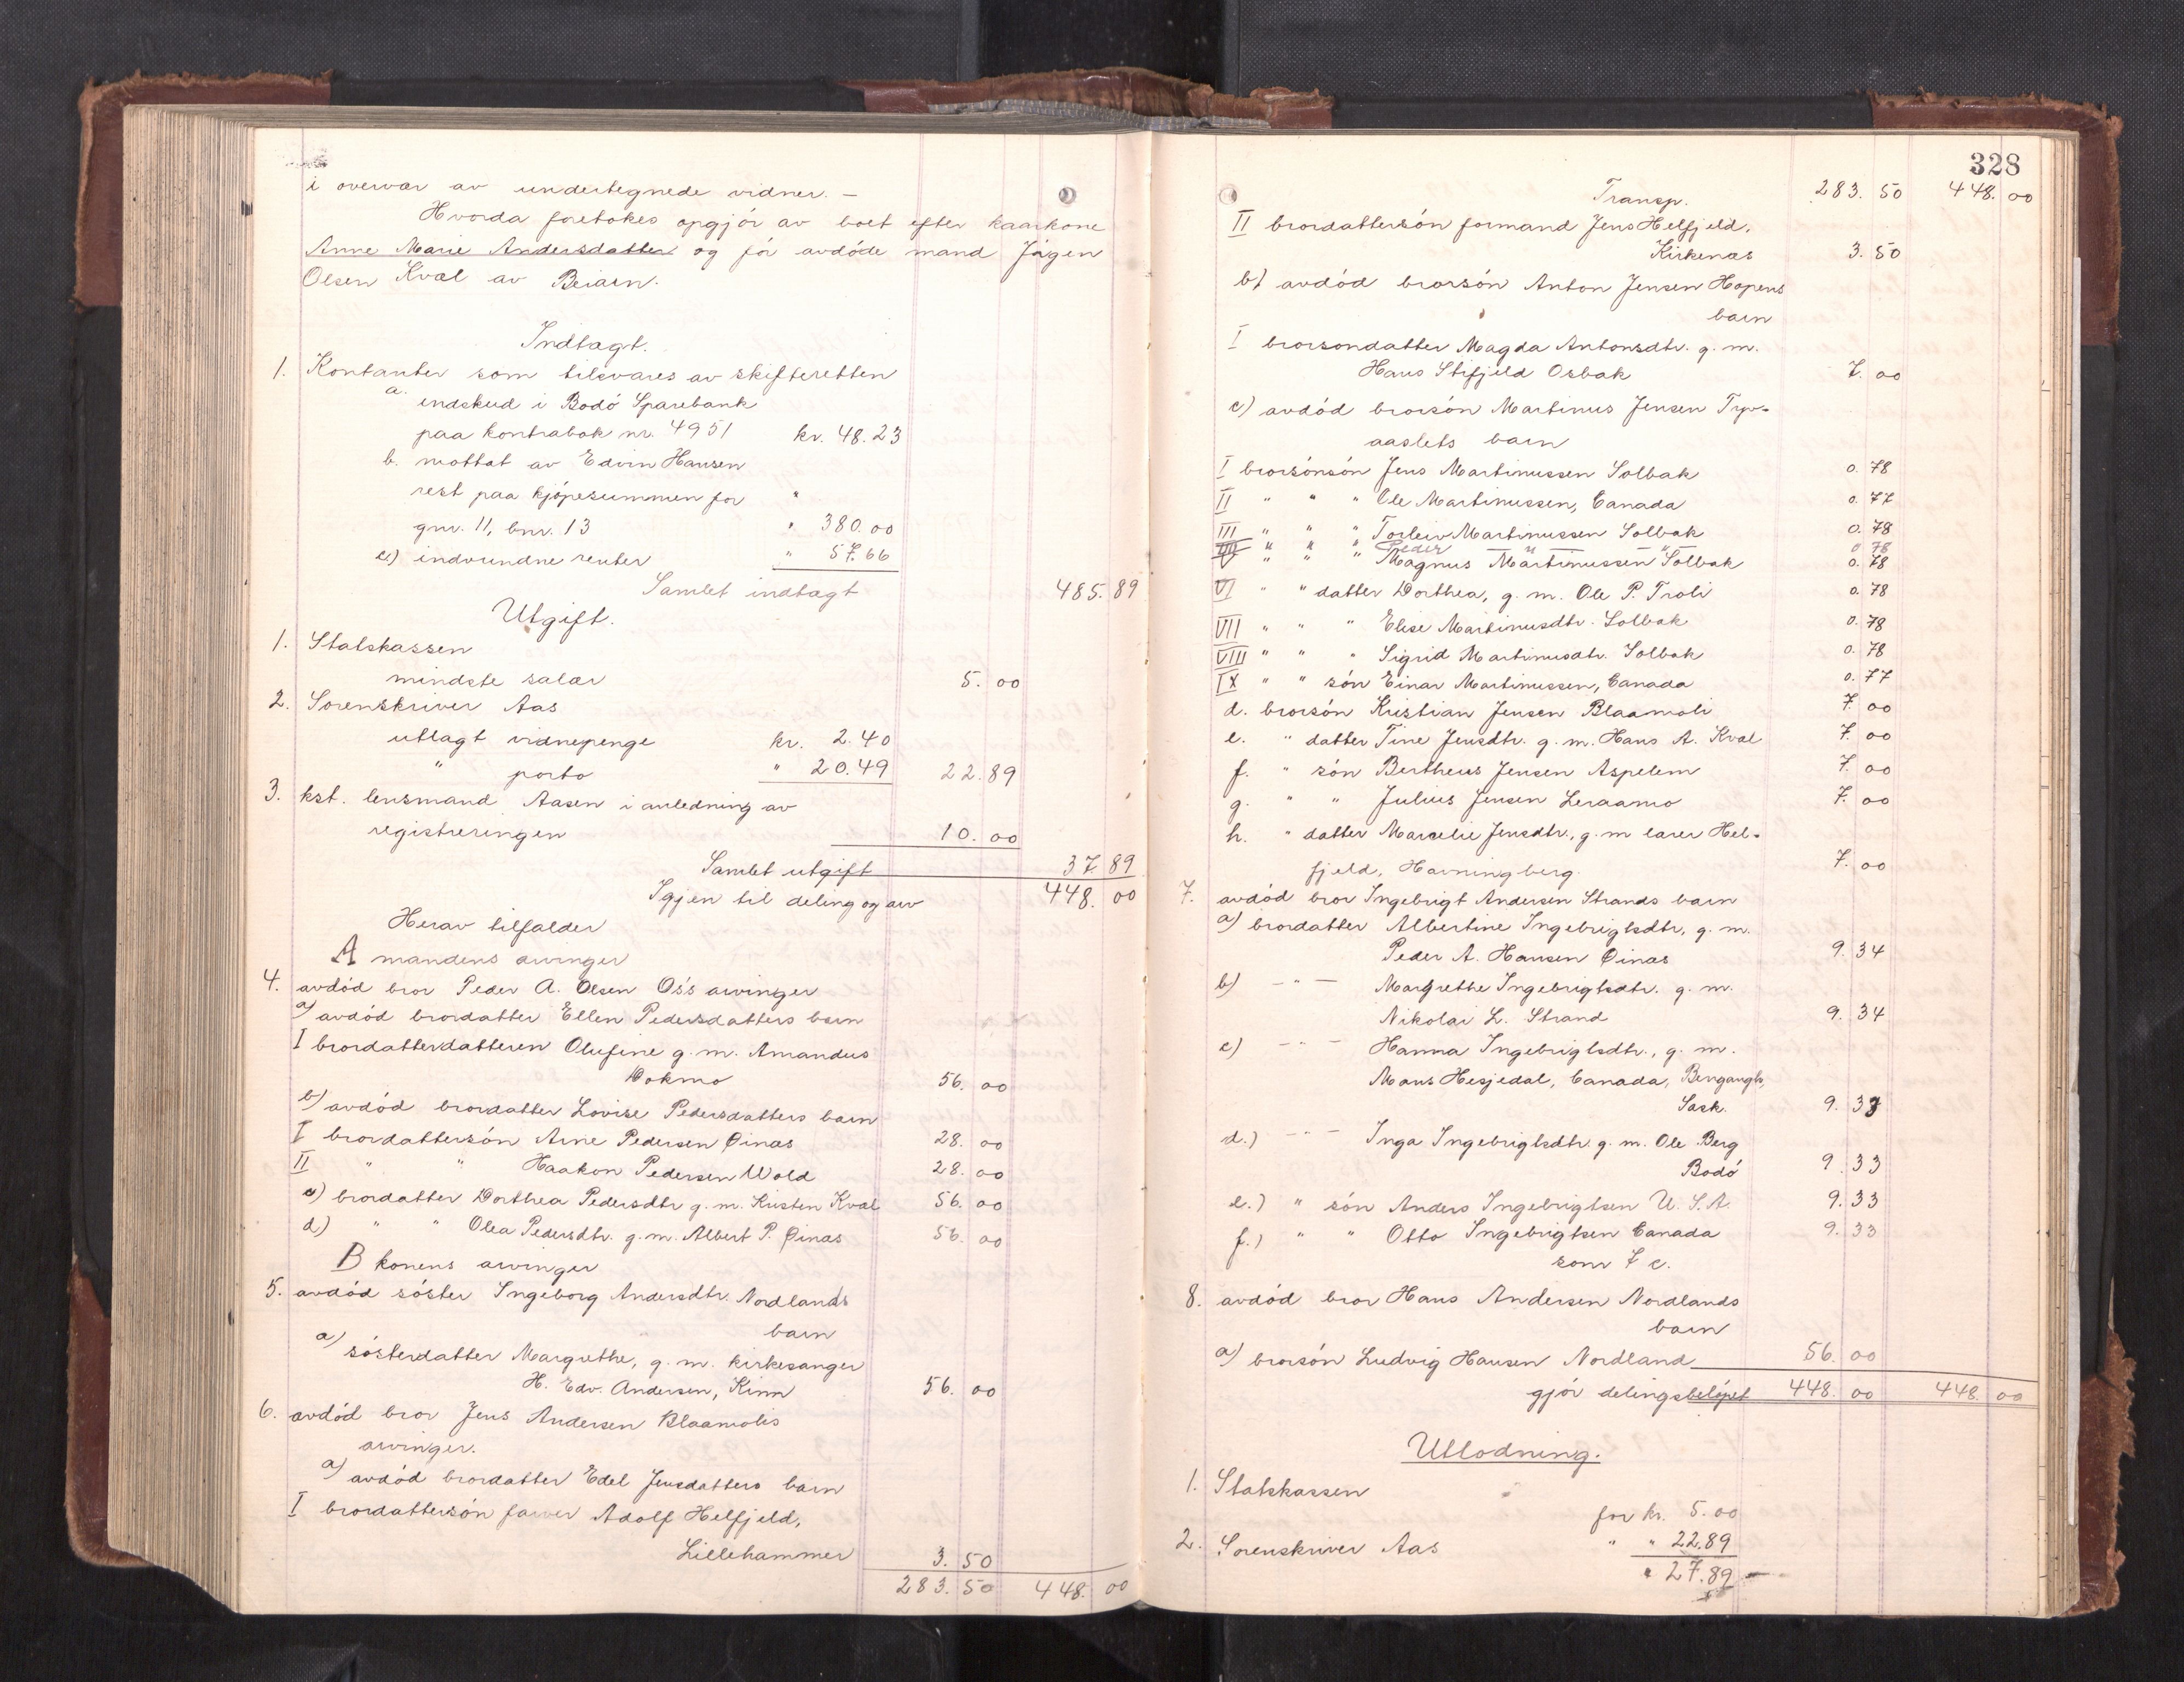 i overvær av undertegnede vidner. –
Hvorda foretokes opgjör av boet efter kaarkone
Anne Marie Andersdatter og för avdöde mand Jögen
Olsen Kval av Beiarn.
Indtægt.
1. Kontanter som tilsvares av skifteretten
a. indskud i Bodö Sparebank
paa kontrabok nr. 4951 kr. 48.23
b. mottat av Edvin Hansen
rest paa kjöpesummen for "
gnr. 11, bnr. 13 " 380.00
c) indvundne renter " 57.66
Samlet indtægt 485.89
Utgift.
1. Statskassen
mindste salær 5.00
2. Sorenskriver Aas
utlagt vidnepenge kr. 2.40
" porto " 20.49 22.89
3. kst. lensmand Aasen i anledning av
registreringen 10.00
Samlet utgift 37.89
Igjen til deling og arv 448.00
Herav tilfalder
A mandens arvinger
4. avdöd bror Peder A. Olsen Os's arvinger
a) avdöd brordatter Ellen Pedersdatters barn
I brordatterdatteren Olufine g. m. Amandus
Dokmo 56.00
b) avdöd brordatter Lovise Pedersdatters barn
I brordattersön Arne Pedersen Øinæs 28.00
II " " Haakon Pedersen Wold 28.00
c) brordatter Dorthea Pedersdtr g. m. Kristen Kval 56.00
d) " " Olea Pedersdtr. g. m. Albert P. Øinæs 56.00
B konens arvinger
5. avdöd söster Ingeborg Andersdtr. Nordlands
barn
a) sösterdatter Margrethe, g. m. kirkesanger
H. Edv. Andersen, Kinn 56.00
6. avdöd bror Jens Andersen Blaamolis
arvinger.
a) avdöd brordatter Edel Jensdatters barn
I brordattersön farver Adolf Helfjeld,
Lillehammer 3.50
283.50 448.00
328
Transp. 283.50 448.00
II brordattersön formand Jens Helfjeld,
Kirkenæs 3.50
b) avdöd brorsön Anton Jensen Hopens
barn
I brorsondatter Magda Antonsdtr. g. m.
Hans Stifjeld Osbak 7.00
c) avdöd brorsön Martinus Jensen Tyv-
aaslets barn
I brorsönsön Jens Martinussen Solbak 0.78
II " " " Ole Martinussen, Canada 0.77
III " " " Torleiv Martinussen Solbak 0.78
IV " " " Peder " " 0.78
V " " " Magnus Martinussen Solbak 0.78
VI " " datter Dorthea, g. m. Ole P. Troli 0.78
VII " " " Elise Martinusdtr. Solbak 0.78
VIII " " " Sigrid Martinusdtr. Solbak 0.78
IX " " sön Einar Martinussen, Canada 0.77
d. brorsön Kristian Jensen Blaamoli 7.00
e. " datter Tine Jensdtr. g. m. Hans A. Kval 7.00
f. " sön Bertheus Jensen Aspelem 7.00
g. " " Julius Jensen Leraamo 7.00
h. " datter Marselie Jensdtr., g. m lærer Hel-
fjeld, Havningberg. 7.00
7. avdöd bror Ingebrigt Andersen Strands barn
a) brordatter Albertine Ingebrigtsdtr, g. m.
Peder A. Hansen Øinæs 9.34
b) – " – Margrethe Ingebrigtsdtr. g. m.
Nikolai L. Strand 9.34
c) – " – Hanna Ingebrigtsdtr., g. m.
Mons Hesjedal, Canada,
Sask. 9.33
d.) – " – Inga Ingebrigtsdtr. g. m. Ole Berg
Bodö 9.33
e.) " sön Anders Ingebrigtsen U. S. A. 9.33
f.) " " Otto Ingebrigtsen Canada 9.33
som 7 c.
8. avdöd bror Hans Andersen Nordlands
barn
a) brorsön Ludvig Hansen Nordland 56.00
gjör delingsbelöpet 448.00 448.00
Utlodning.
1. Statskassen
for kr. 5.00
2. Sorenskriver Aas " " 22.89
" 27.89 –